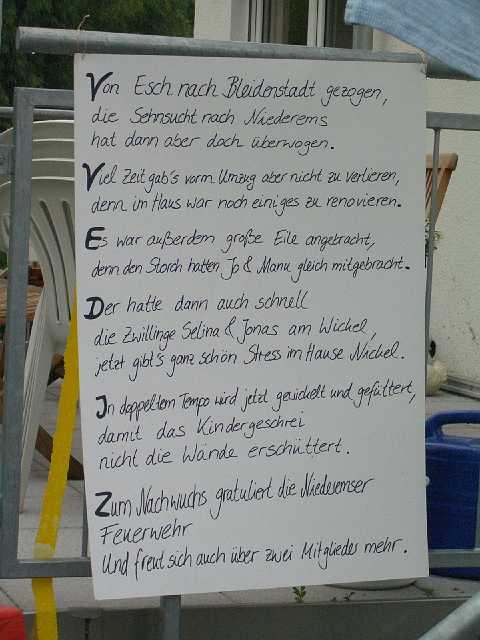 Von Esch nach Bleidenstadt gezogen,
die Sehnsucht nach Niederems
hat dann aber doch überwogen.
Viel Zeit gab's vorm Umzug aber nicht zu verlieren,
denn im Haus war noch einiges zu renovieren.
Es war außerdem große Eile angebracht,
denn den Storch hatten Jo & Manu gleich mitgebracht.
Der hatte dann auch schnell
die Zwillinge Selina & Jonas am Wickel,
jetzt gibt's ganz schön Stress im Hause Nickel.
In doppeltem Tempo wird jetzt gewickelt und gefüttert,
damit das Kindergeschrei
nicht die Wände erschüttert.
Zum Nachwuchs gratuliert die Niederemser
Feuerwehr
Und freut sich auch über zwei Mitglieder mehr.